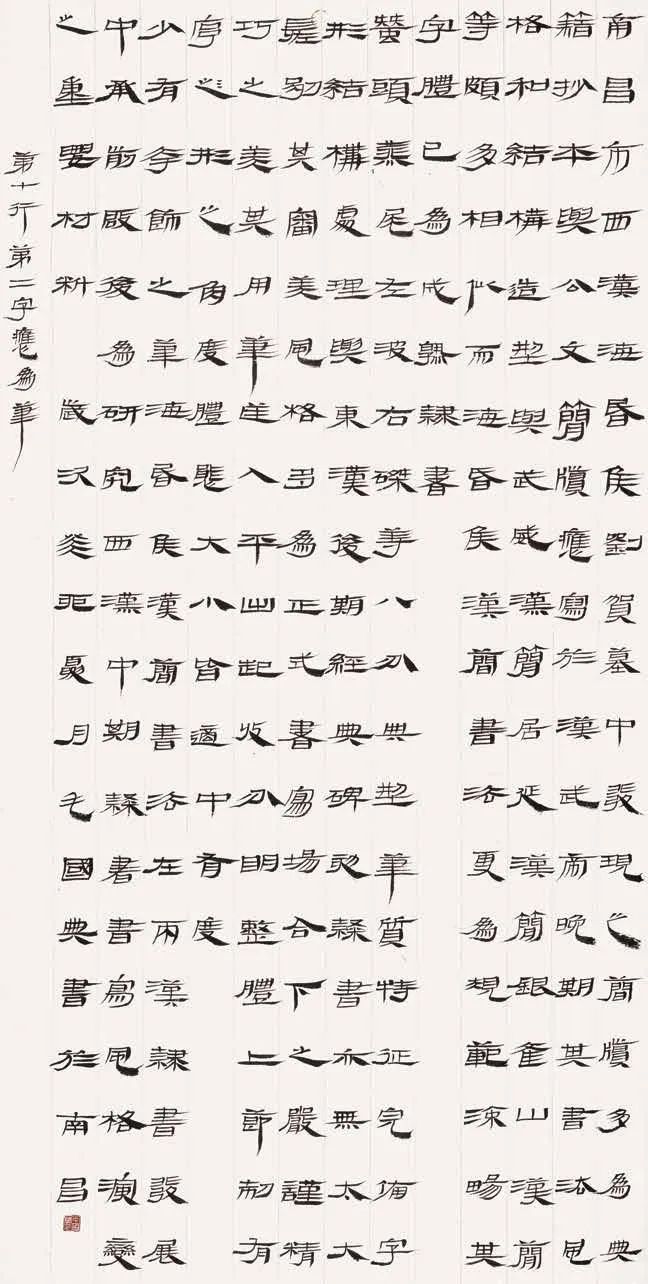 南昌市西漢海昏侯劉賀墓中發現之簡牘多為典
籍抄本與公文簡牘應寫於漢武帝晚期其書法風
格和結構造型與武威漢簡居延漢簡銀雀山漢簡
等頗多相似而海昏侯漢簡書法更為規範流暢其
字體已為成熟隸書
蠶頭燕尾左波右磔等八分典型筆質特征完備字
形結構處理與東漢後期經典碑刻隸書亦無太大
差別其審美風格多為正式書寫場合下之嚴謹精
巧之美其用筆逆入平出起收分明整體上節制有
序之形之角度體態大小皆適中有度
少有夸飾之筆海昏侯漢簡書法在兩漢隸書發展
中承前啟後為研究西漢中期隸書書寫風格演變
之重要材料 歲次癸卯夏月毛國典書於南昌
第十行第二字應為筆